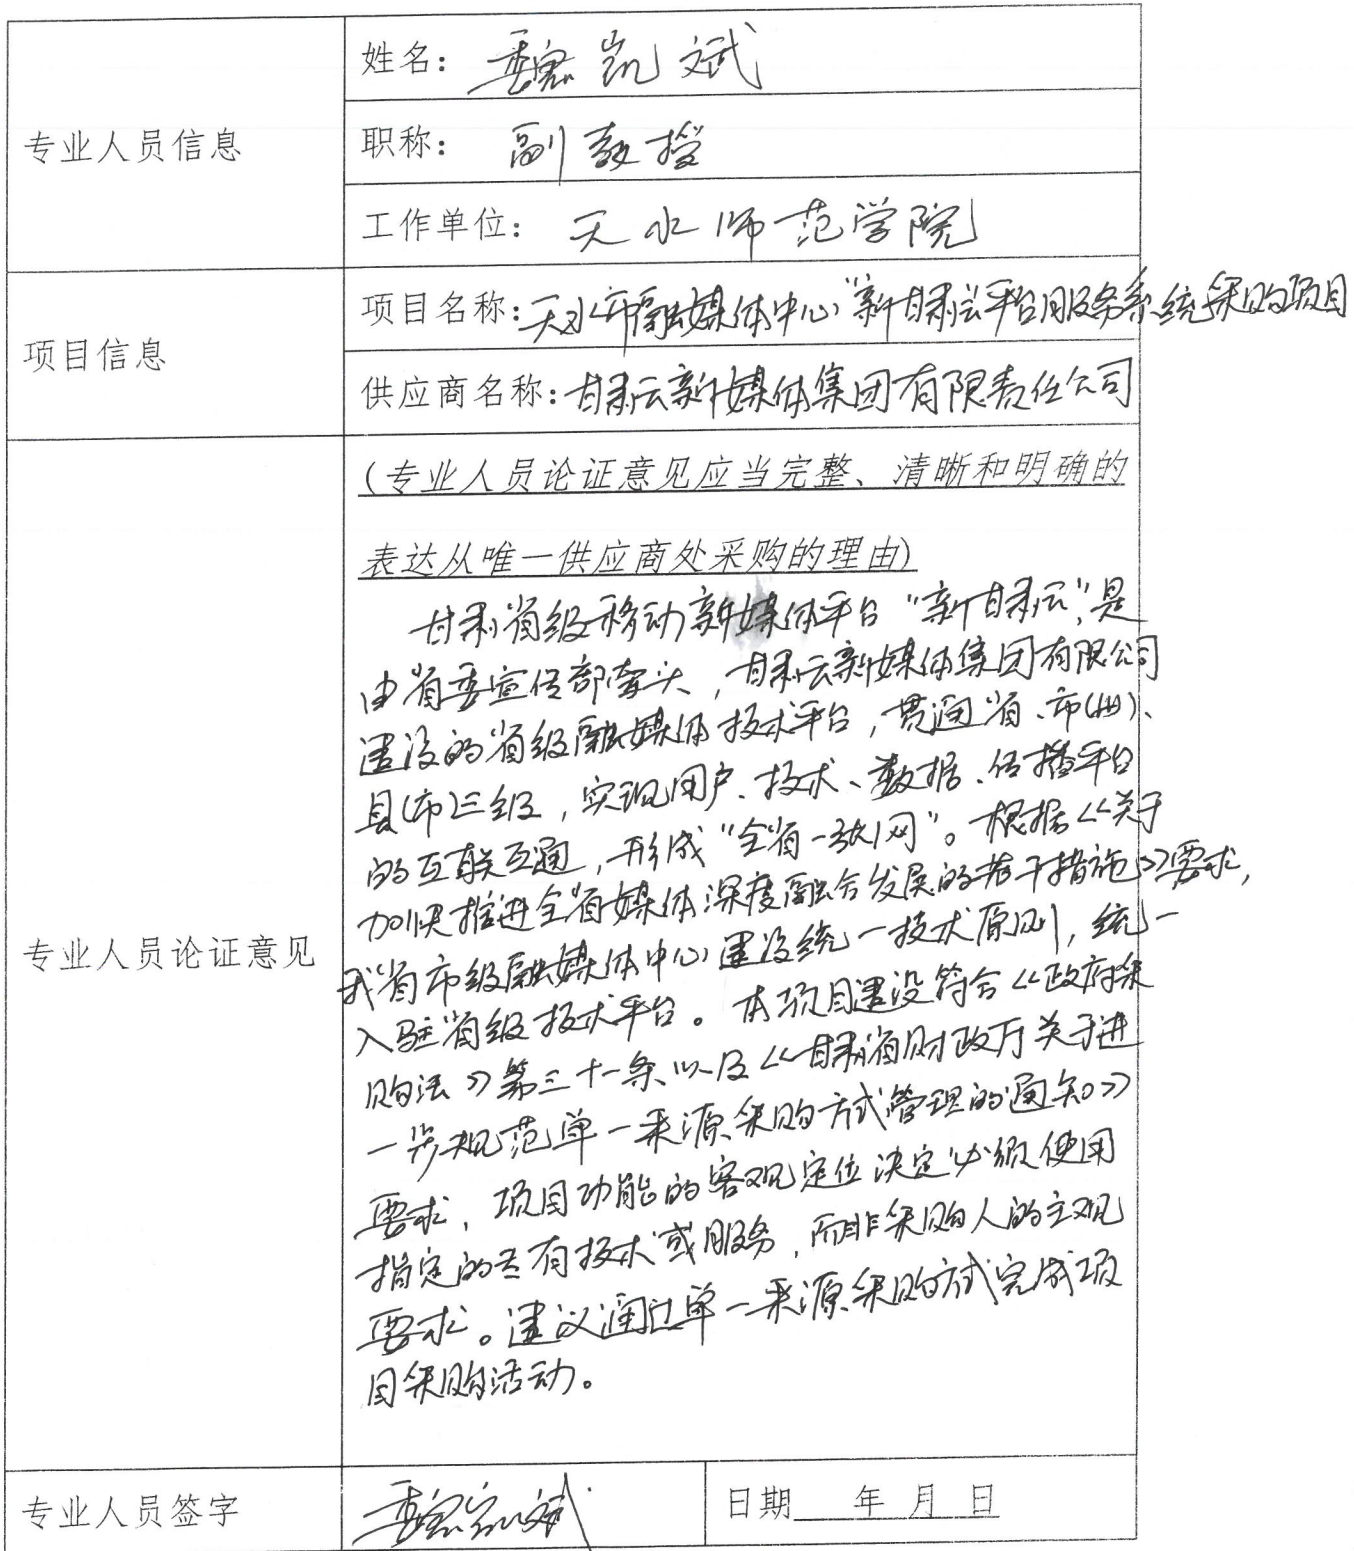 专业人员信息
姓名：魏凯斌
职称：副教授
工作单位：天水师范学院
项目信息
项目名称：天水市融媒体中心“新甘肃云平台”服务系统采购项目
供应商名称：甘肃云新媒体集团有限责任公司
专业人员论证意见
(专业人员论证意见应当完整、清晰和明确的
表达从唯一供应商处采购的理由)
甘肃省级移动新媒体平台“新甘肃云”，是
由省委宣传部牵头，甘肃云新媒体集团有限公司
建设的省级融媒体技术平台，贯通省、市(州)、
县(市)三级，实现用户、技术、数据、传播平台
的互联互通，形成“全省一张网”。根据《关于
加快推进全省媒体深度融合发展的若干措施》要求，
我省市级融媒体中心建设统一技术原则，统一
入驻省级技术平台。本项目建设符合《政府采
购法》第三十一条以及《甘肃省财政厅关于进
一步规范单一来源采购方式管理的通知》
要求，项目功能的客观定位决定必须使用
指定的专有技术或服务，而非采购人的主观
要求。建议通过单一来源采购方式完成项
目采购活动。
专业人员签字
魏凯斌
日期 年 月 日